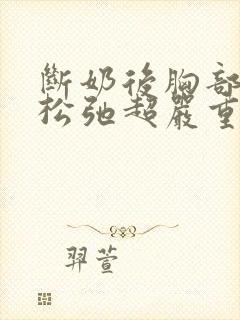 斷奶後胸部
松弛超嚴重
羿萱